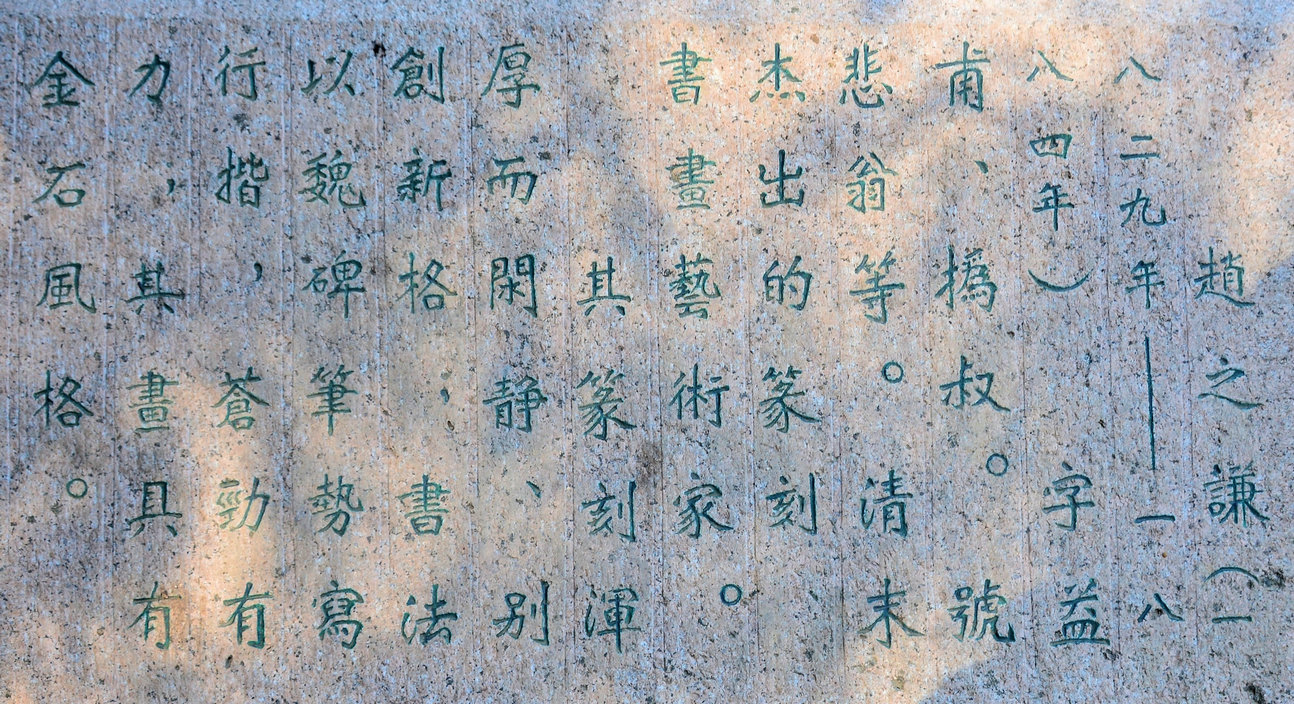 趙之謙（一
八二九年——一八
八四年）字益
甫、撝叔。號
悲翁等。清末
杰出的篆刻
書畫藝術家。
其篆刻渾
厚而閑静、别
創新格；書法
以魏碑筆勢寫
行揩，蒼勁有
力，其畫具有
金石風格。